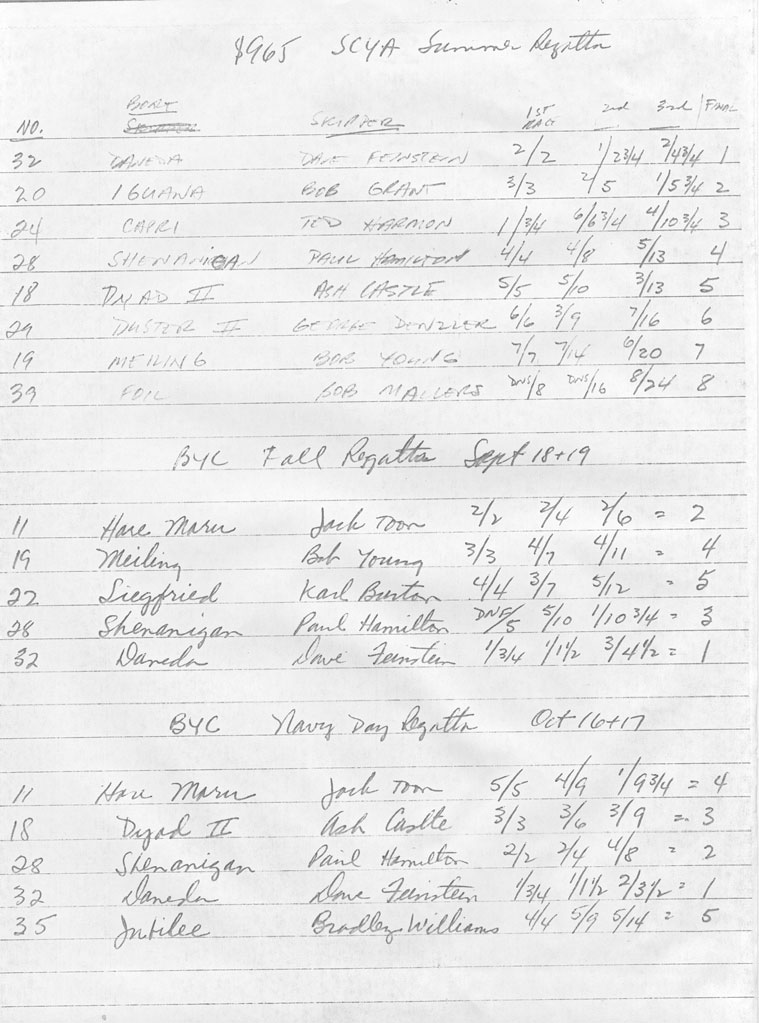 1965 SCYA Summer Regatta
NO. BOAT SKIPPER 1ST RACE 2nd 3rd FINAL
32 DANEDA DAVE FEINSTEIN 2/2 1/2 3/4 2/4 3/4 1
20 IGUANA BOB GRANT 3/3 2/5 1/5 3/4 2
24 CAPRI TED HARMON 1/3/4 6/6 3/4 4/10 3/4 3
28 SHENANIGAN PAUL HAMILTON 4/4 4/8 5/13 4
18 DYAD II ASH CASTLE 5/5 5/10 3/13 5
29 DUSTER II GEORGE DENZLER 6/6 3/9 7/16 6
19 MEILING BOB YOUNG 7/7 7/14 6/20 7
39 FOIL BOB MALLERS DNS/8 DNS/16 8/24 8
BYC Fall Regatta Sept 18+19
11 Hare Maru Jack Toon 2/2 2/4 2/6 = 2
19 Meiling Bob Young 3/3 4/7 4/11 = 4
22 Siegfried Karl Burton 4/4 3/7 5/12 = 5
28 Shenanigan Paul Hamilton DNF/5 5/10 1/10 3/4 = 3
32 Daneda Dave Feinstein 1/3/4 1/1 1/2 3/4 1/2 = 1
BYC Navy Day Regatta Oct 16+17
11 Hare Maru Jack Toon 5/5 4/9 1/9 3/4 = 4
18 Dyad II Ash Castle 3/3 3/6 3/9 = 3
28 Shenanigan Paul Hamilton 2/2 2/4 4/8 = 2
32 Daneda Dave Feinstein 1/3/4 1/1 1/2 2/3 1/2 = 1
35 Jubilee Bradley Williams 4/4 5/9 5/14 = 5